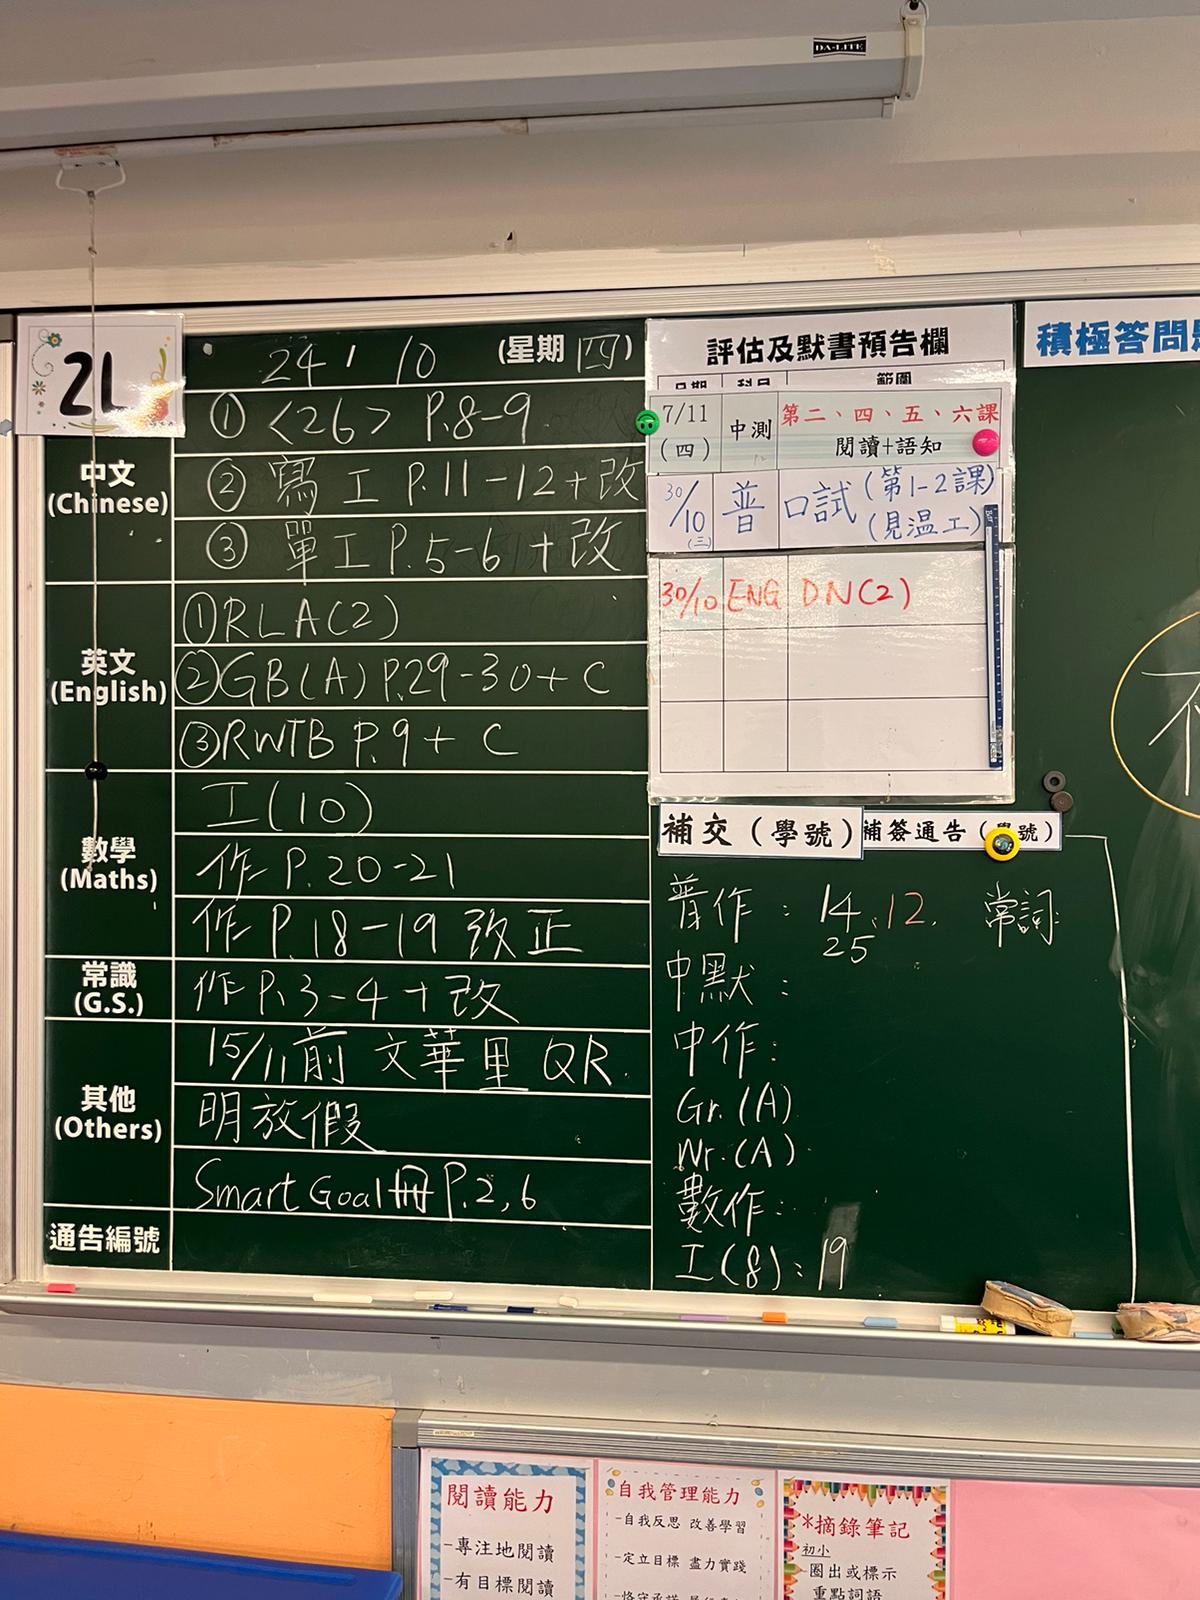 DA-LITE
2L
24 / 10 (星期 四)
中文
(Chinese)
① <26> P.8-9
② 寫工 P.11-12+改
③ 單工 P.5-6 +改
英文
(English)
①RLA(2)
②GB(A) P.29-30+ C
③RWTB P.9+ C
數學
(Maths)
工(10)
作 P.20-21
作 P.18-19 改正
常識
(G.S.)
作 P.3-4+改
其他
(Others)
15/11前 文華里 QR.
明放假
Smart Goal冊 P.2,6
通告編號
評估及默書預告欄
日期 科目 範圍
7/11
(四)
中測
第二、四、五、六課
閱讀+語知
30/10
(三)
普
口試(第1-2課)
(見温工)
30/10 ENG DN(2)
補交(學號)
補簽通告(學號)
普作: 14、12. 常詞:
25
中默:
中作:
Gr.(A)
Wr.(A)
數作:
工(8): 19
積極答問
閱讀能力
-專注地閱讀
-有目標閱讀
自我管理能力
-自我反思 改善學習
-定立目標 盡力實踐
*摘錄筆記
初小
-圈出或標示
重點詞語